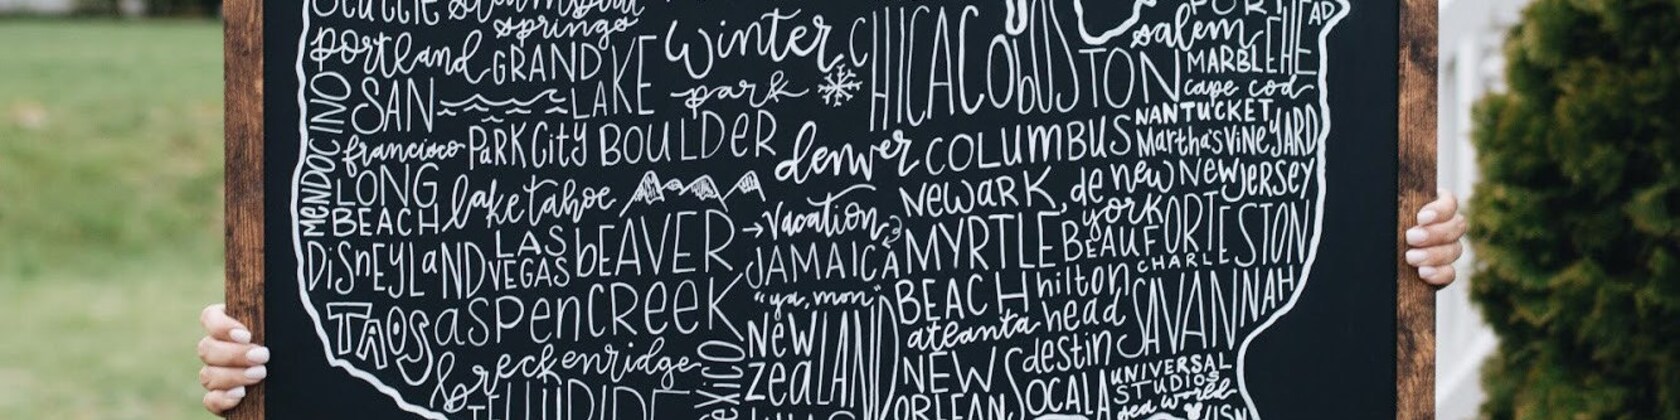 Seattle Steamboat springs
PORT
portland GRAND LAKE winter park CHICAGO
bOSTON
salem
MARBLEHEAD
cape cod
MENDOCINO
SAN francisco
PARK City BOULDER denver COLUMBUS
NANTUCKET
Martha's VINEYARD
LONG BEACH lake tahoe
NewaRK, de new york New JERSEY
→ Vacation
DiSNEYLaND LAS VEGAS bEAVER CREEK
JAMAICA
"ya, mon"
MYRTLE BEACH
BEAUFORT
CHARLESTON
hilton head
SAVANNAH
TAOS aspen
atlanta
breckenridge
mexico
NEW ZEALAND
NEW ORLEANS
destin
OCALA
UNIVERSAL STUDIOS
sea world
TELLURIDE